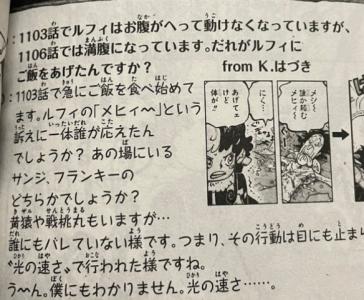 ：1103話でルフィはお腹がへって動けなくなっていますが、
1106話では満腹になっています。だれがルフィに
ご飯をあげたんですか？
from K.はづき
：1103話で急にご飯を食べ始めて
ます。ルフィの「メヒィ〜〜」という
訴えに一体誰が応えたん
でしょうか？ あの場にいる
サンジ、フランキーの
どちらかでしょうか？
黄猿や戦桃丸もいますが…
誰にもバレていない様です。つまり、その行動は目にも止ま
“光の速さ”で行われた様ですね。
う〜ん。僕にもわかりません。光の速さ……。
メシ〜
誰か頼む
メヒィ〜
にく…
あげてェ
けど
体が!!